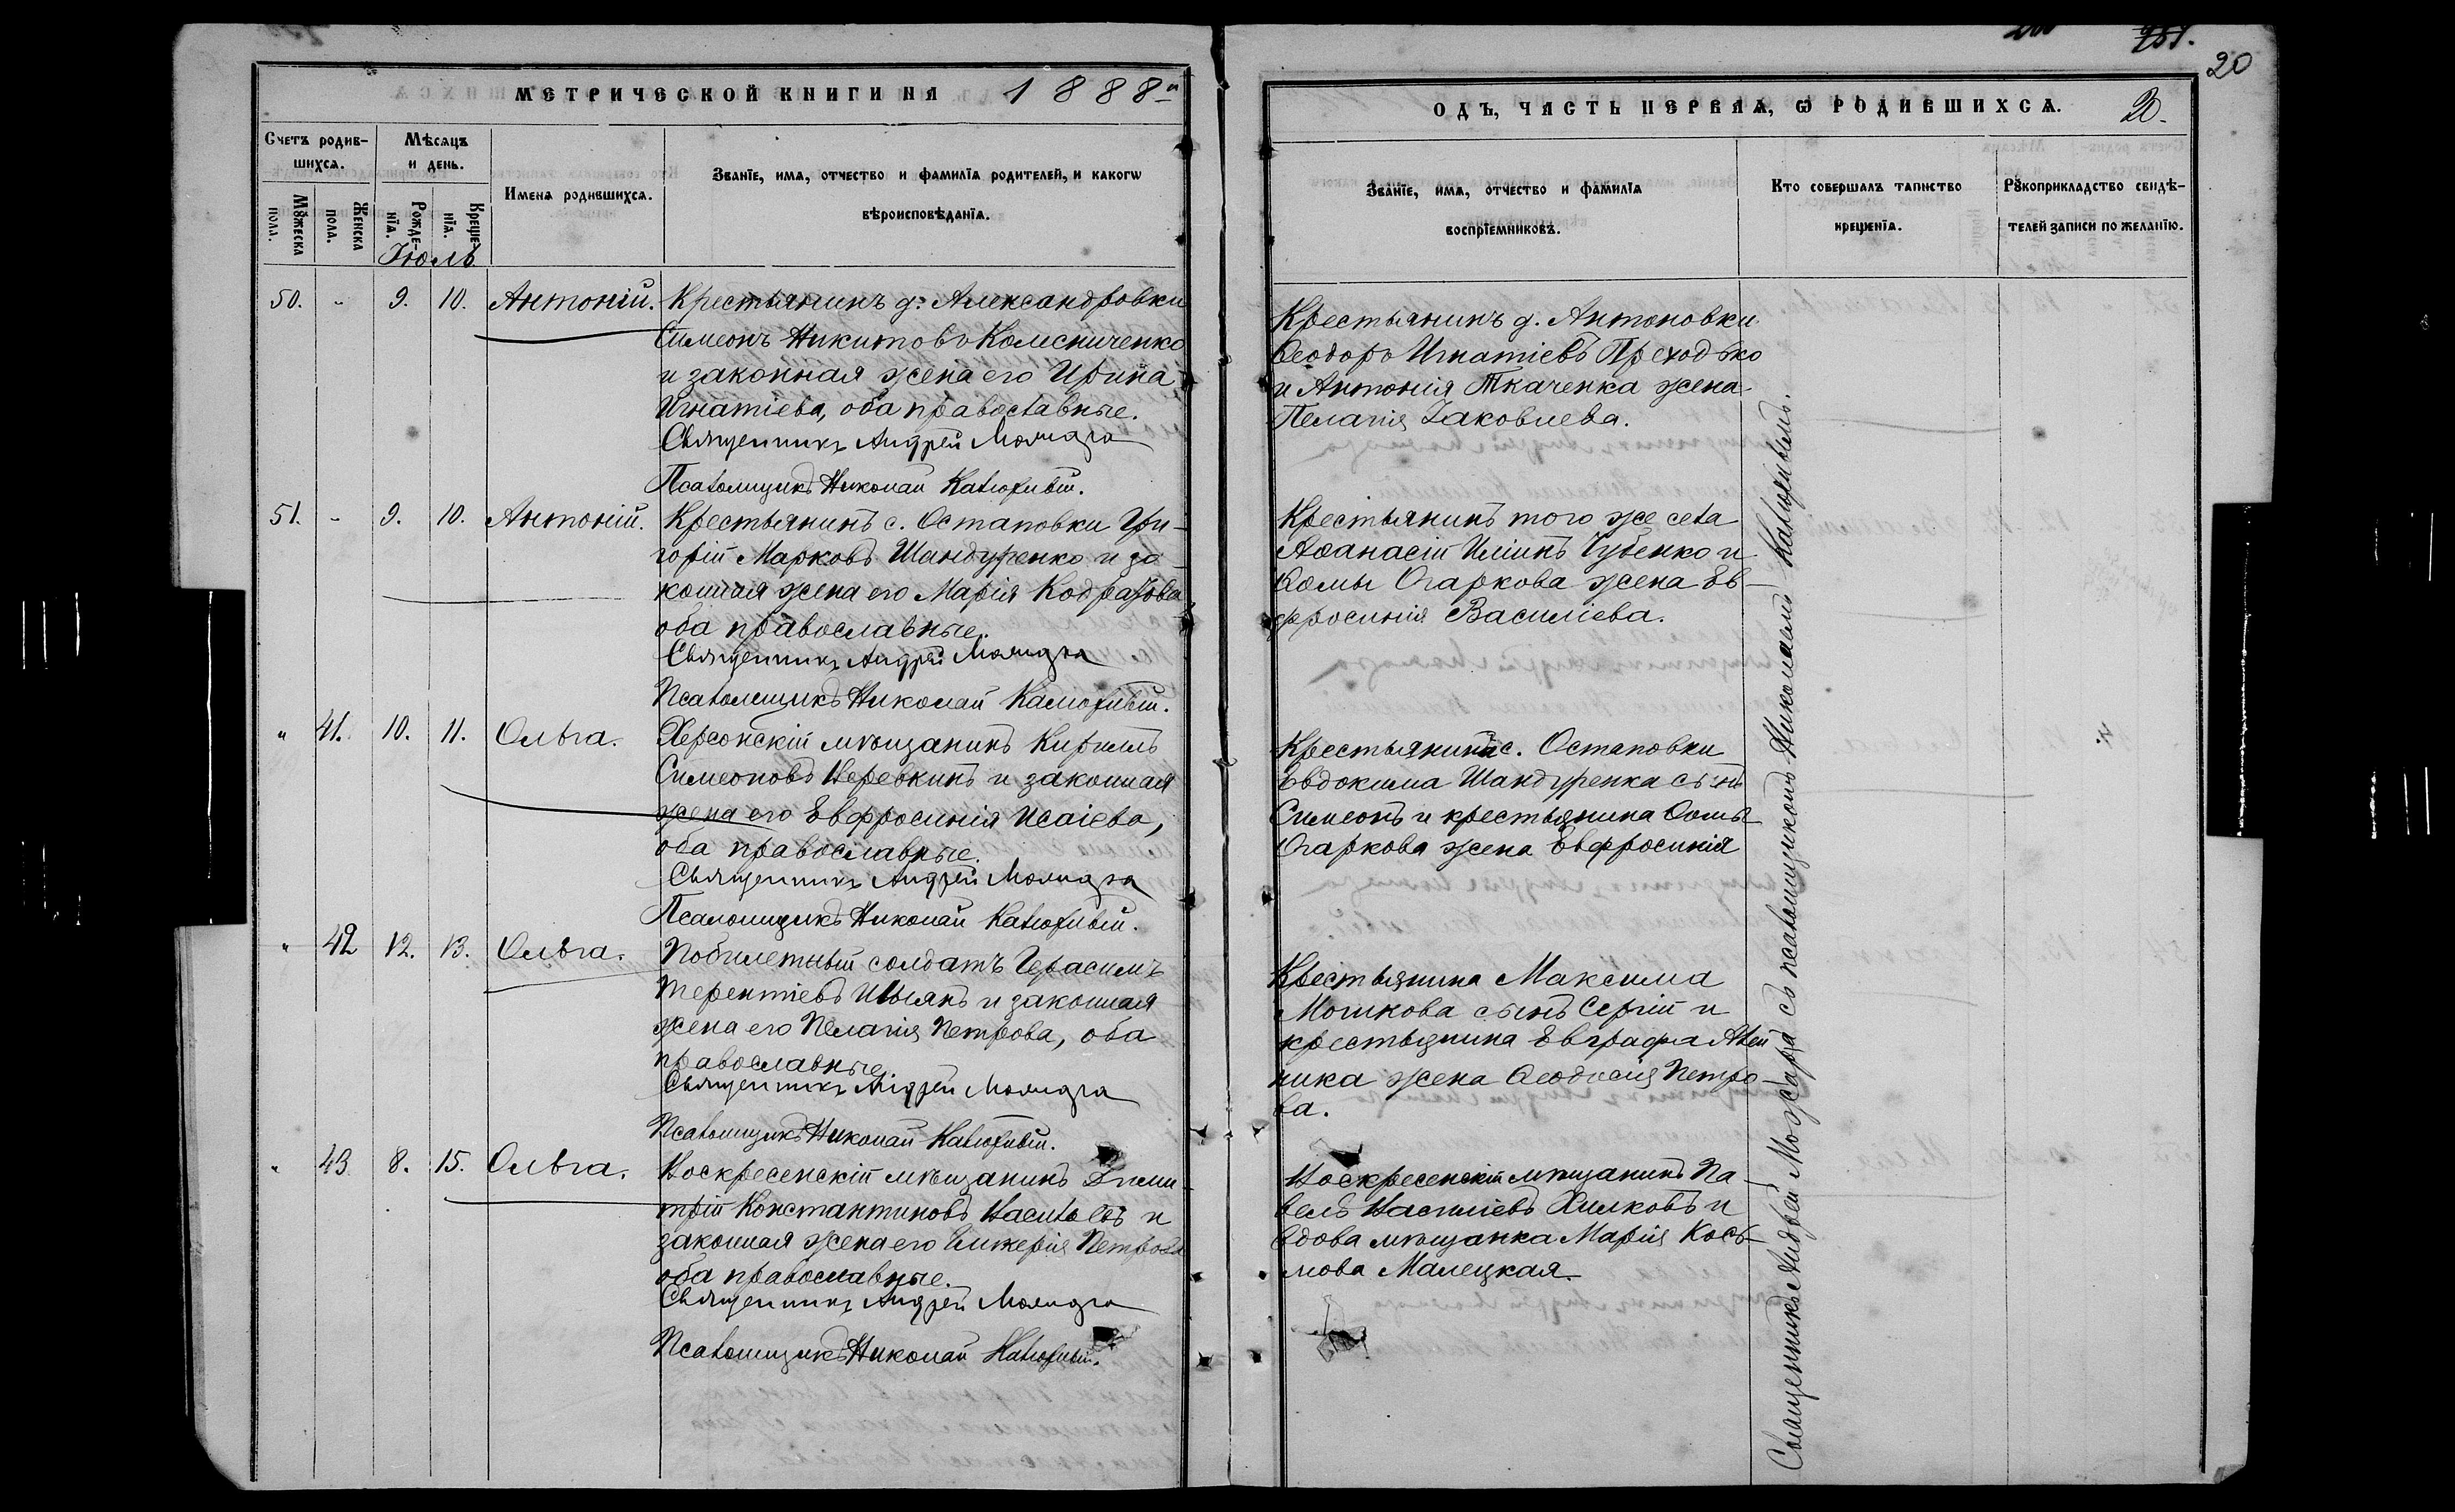 МЕТРИЧЕСКОЙ КНИГИ НА 1888й
Счетъ родив-
шихсѧ.
Мѣсѧцъ
и день.
Имена родившихсѧ.
Званїе, имѧ, отчество и фамилїѧ родителей, и какогѡ
вѣроисповѣданїѧ.
Мꙋжеска
пола.
Женска
пола.
Рожде-
нїѧ.
Креще-
нїѧ.
Іюль
50. " 9. 10. Антоній. Крестьянинъ д. Александровки
Симеонъ Никитовъ Колесниченко
и законная жена его Ирина
Игнатіева, оба православные.
Священникъ Андрей Можара
Псаломщикъ Николай
51. " 9. 10. Антоній. Крестьянинъ с. Остаповки Гри-
горій Марковъ Шандуренко и за-
конная жена его Марія Кодратова
оба православные.
Священникъ Андрей Можара
Псаломщикъ Николай
" 41. 10. 11. Ольга. Херсонскій мѣщанинъ Кириллъ
Симеоновъ Веревкинъ и законная
жена его Евфросинія Исаіева,
оба православные.
Священникъ Андрей Можара
Псаломщикъ Николай
" 42 12. 13. Ольга. Побилетный солдатъ Герасимъ
Терентіевъ и законная
жена его Пелагія Петрова, оба
православные
Священникъ Андрей Можара
Псаломщикъ Николай
" 43 8. 15. Ольга. Воскресенскій мѣщанинъ Дими
трій Константиновъ и
законная жена его Гликерія Петрова
оба православные.
Священникъ Андрей Можара
Псаломщикъ Николай
251.
20
ОДЪ, ЧАСТЬ ПЕРВАѦ, Ѡ РОДИВШИХСѦ. 20.
Званїе, имѧ, отчество и фамилїѧ
воспрїемниковъ.
Кто совершалъ таинство
крещенїѧ.
Рꙋкоприкладство свидѣ-
телей записи по желанїю.
Крестьянинъ д. Антоновки
Ѳеодоръ Игнатіевъ Преходько
и Антонія Ткаченка жена
Пелагія Іаковлева.
Крестьянинъ того же села
Аѳанасій Иліинъ Чубенко и
Ѳомы Огаркова жена Ев-
фросинія Василіева.
Крестьянина с. Остаповки
Евдокима Шандуренка сынъ
Симеонъ и крестьянина Ѳомы
Огаркова жена Евфросинія
Крестьянина Максима
Мошкова сынъ Сергій и
крестьянина Евграфа Алей
ника жена Ѳеодосія Петро-
ва.
Воскресенскій мѣщанинъ Па-
велъ Василіевъ Хилковъ и
вдова мѣщанка Марія Кось-
мова Малецкая.
Священникъ Андрей Можара съ псаломщикомъ Николаемъ